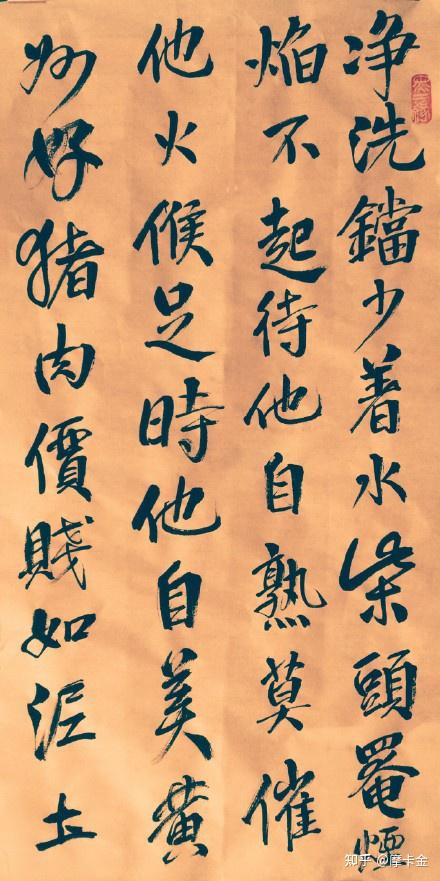 净洗鐺少著水柴頭罨煙
焰不起待他自熟莫催
他火候足時他自美黄
州好猪肉價賤如泥土
知乎 @摩卡金